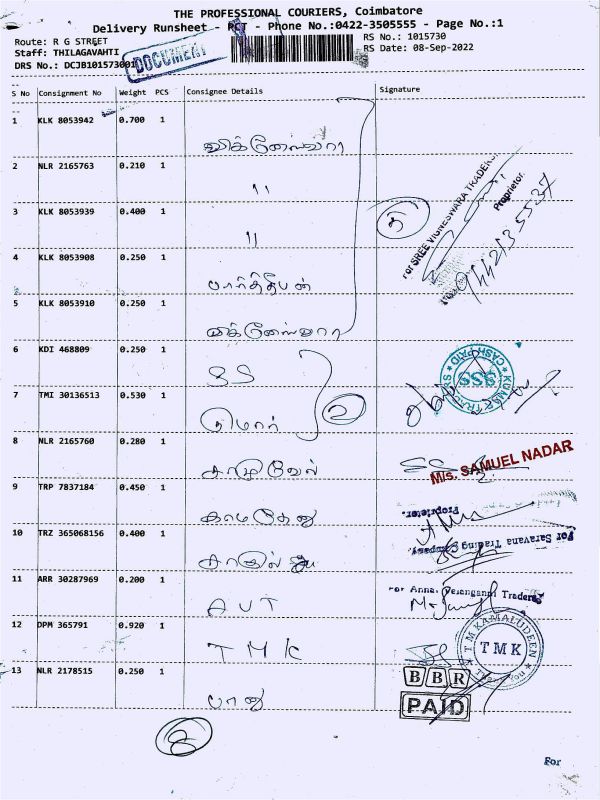 THE PROFESSIONAL COURIERS, Coimbatore
Delivery Runsheet - RCT - Phone No.:0422-3505555 - Page No.:1
Route: R G STREET
RS No.: 1015730
Staff: THILAGAVAHTI
DOCUMENT
RS Date: 08-Sep-2022
DRS No.: DCJB101573001
S No Consignment No Weight PCS Consignee Details Signature
1 KLK 8053942 0.700 1
விக்னேஸ்வரா
2 NLR 2165763 0.210 1
"
3 KLK 8053939 0.400 1
"
5
For SREE VIGNESWARA TRADERS
Proprietor.
4 KLK 8053908 0.250 1
பார்த்திபன்
5 KLK 8053910 0.250 1
விக்னேஸ்வரா
6 KDI 468809 0.250 1
SS
KUMAR TRADERS CASH PAID
SSS
7 TMI 30136513 0.530 1
குமார்
2
8 NLR 2165760 0.280 1
சாமுவேல்
M/s. SAMUEL NADAR
9 TRP 7837184 0.450 1
காமதேனு
Proprietor.
10 TRZ 365068156 0.400 1
For Saravana Trading Company.
11 ARR 30287969 0.200 1
AVT
For Annai Velanganni Traders
12 DPM 365791 0.920 1
TMK
T M KAMALUDEEN
TMK
13 NLR 2178515 0.250 1
பானு
BBR
PAID
8
For